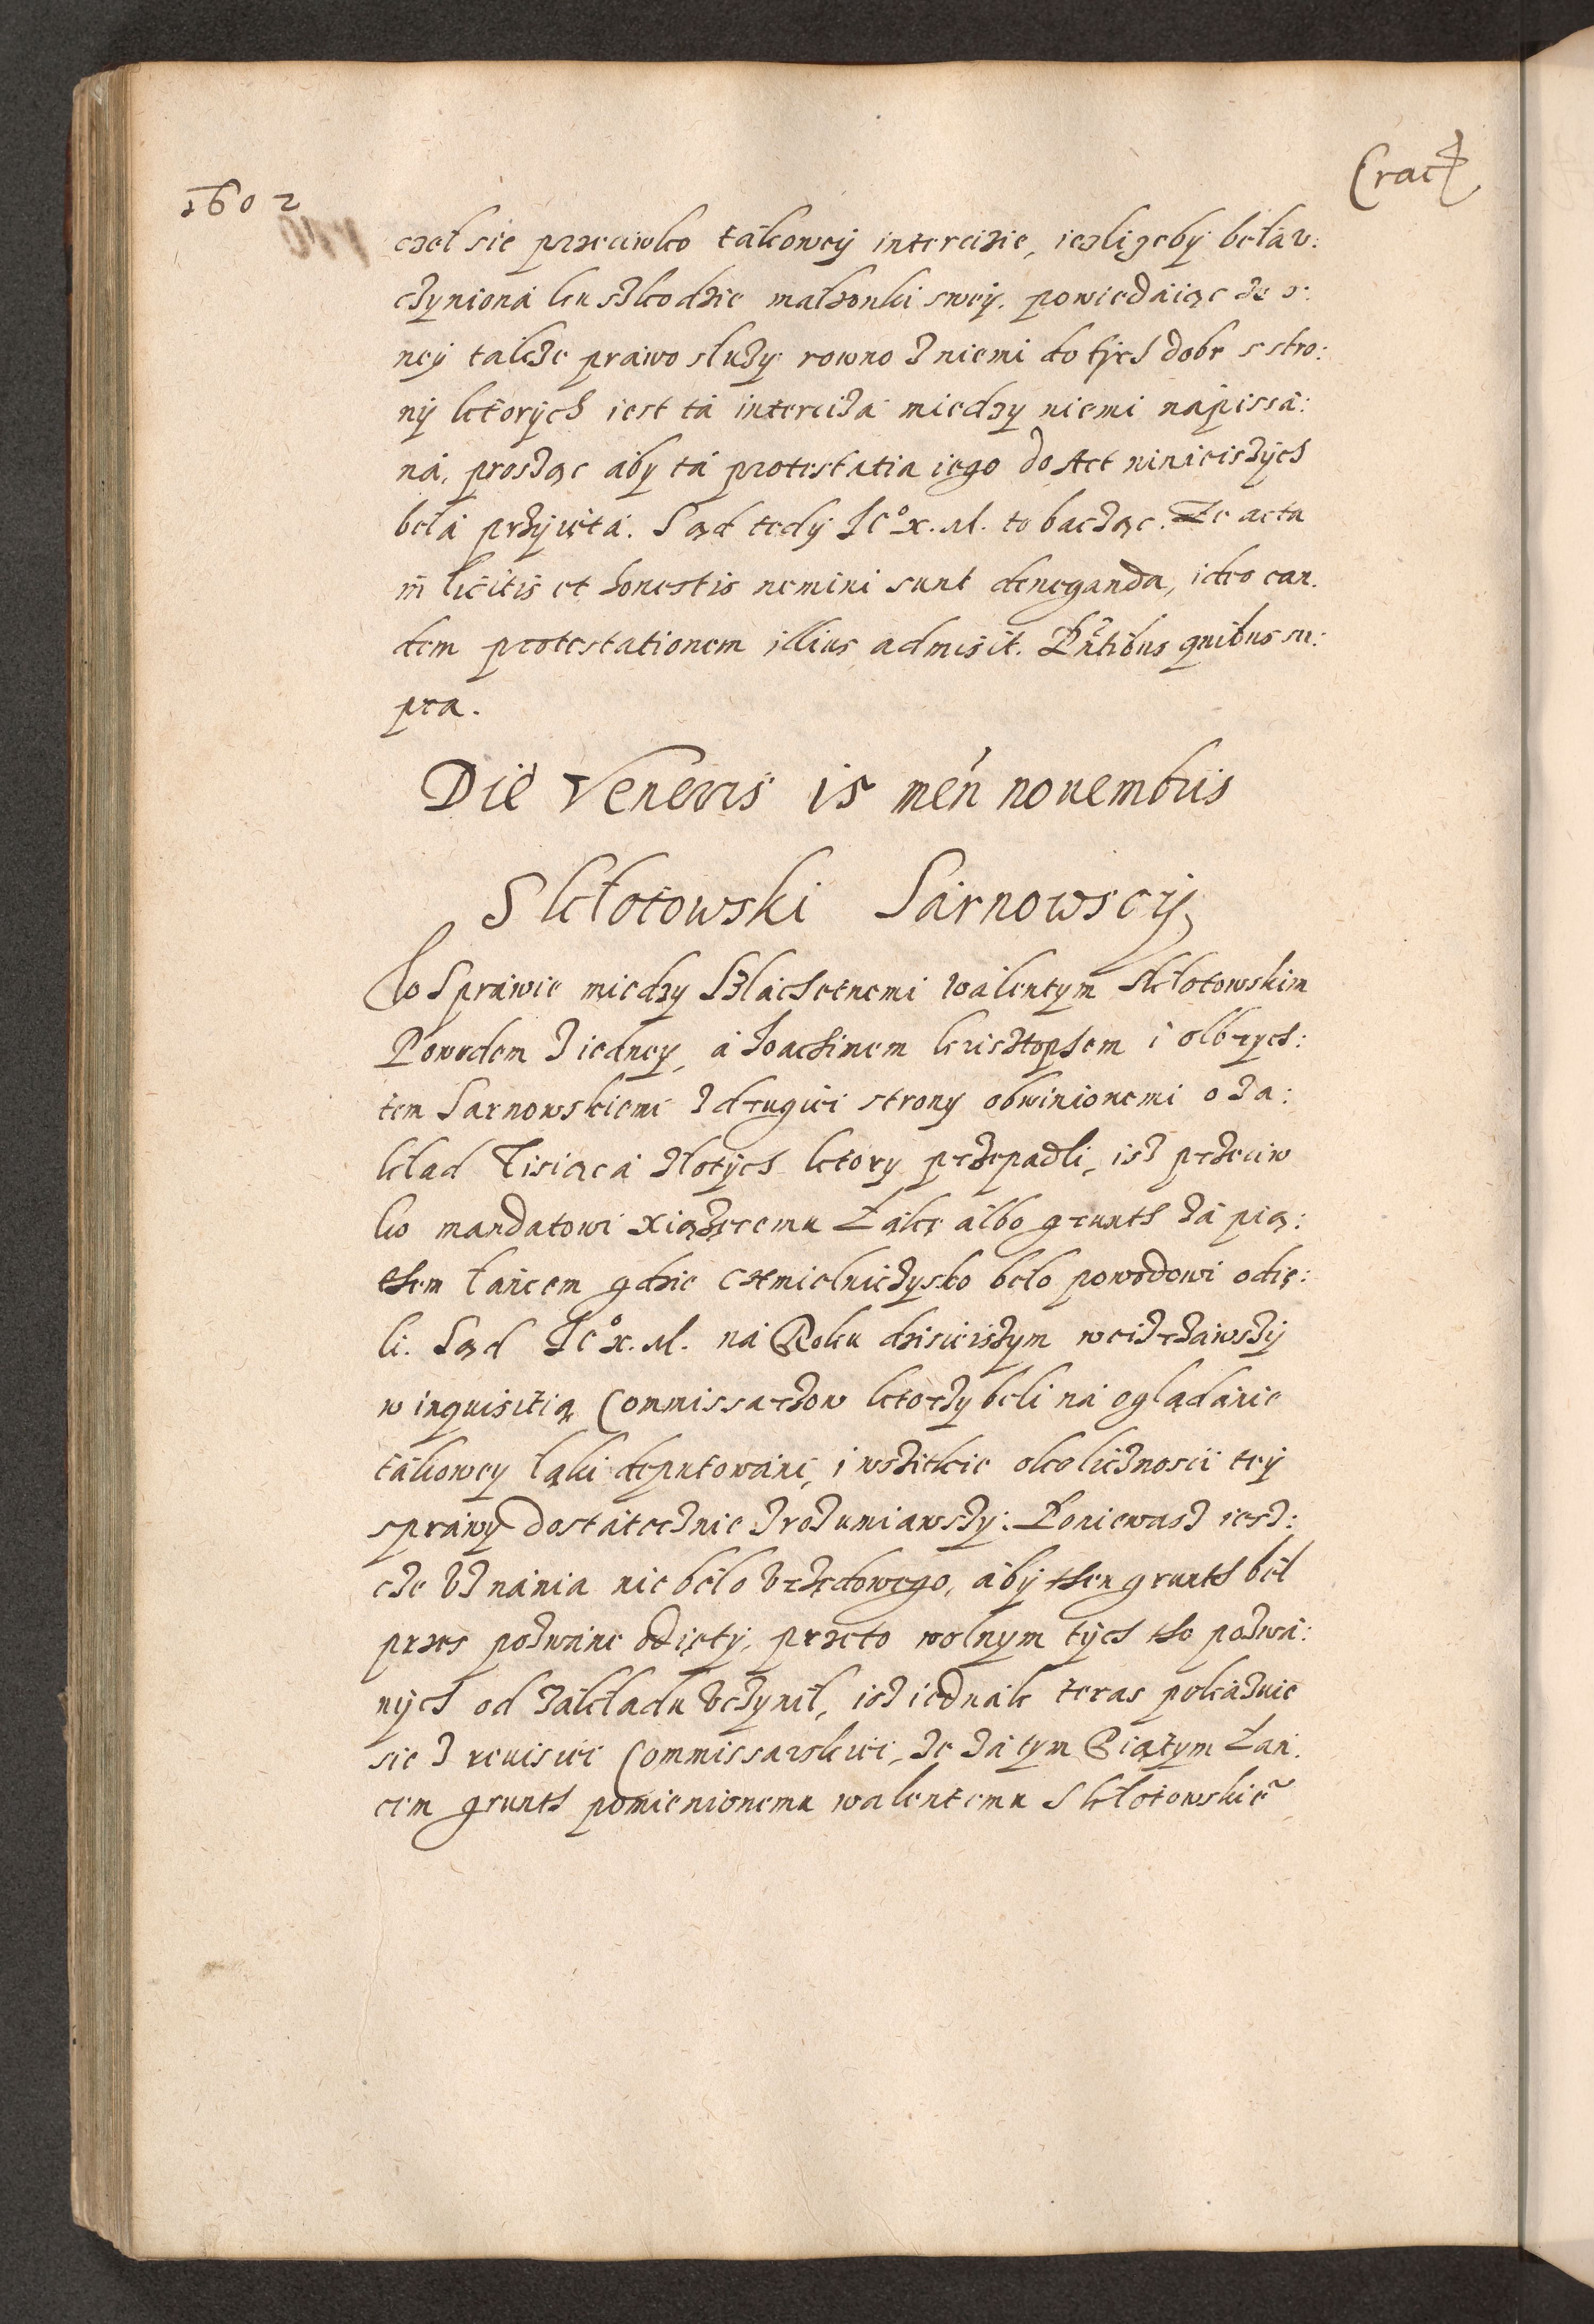 1602
Crac
czeł sie przeciwko tákowey intercizie, iezliżeby beła v:
czyniona ku szkodzie małżonki swey. powiedaiąc że o:
ney także prawo służy rowno z niemi do tych dobr s stro:
ny ktorych iest tá interciza miedzy niemi nápissá:
ná, prosząc áby tá protestatia iego do Act ninieiszych
belá przyięta. Sąd tedy Je° x. M. to bacząc. Ze acta
in licitis et honestis nemini sunt deneganda, ideo ean.
dem protestationem illius admisit. Pñtibus quibus su:
pra.
Die Veneris 15 men novembris
Skłotowski Sárnowscy
W Sprawie miedzy Szláchetnemi Wálentym Skłotowskim
Powodem z iedney, á Joachimem krisztophem i olbrych:
tem Sarnowskiemi z drugiei strony obwinionemi o za:
kład Tisiącá złotych ktory przepadli, isz przeciw
ko mandatowi xiążęcemu Łąkę álbo grunth zá pią:
them łańcem gdzie Chmielniczysko beło powodowi odię:
li. Sąd Je° x. M. ná Roku dzisieiszym weizrzáwszy
w inquisitią Commissarzow ktorzy beli ná oglądánie
tákowey łąki deputowáni, i wszitkie okolicznosci tey
spráwy dostátecznie zrozumiawszy: Poniewasz iesz:
cze vznánia nie beło vrzędowego, áby then grunth beł
przes pozwáne odięty, przeto wolnym tych tho pozwá:
nych od zákładu vczynił, isz iednák teras pokázuie
sie z reuisiei Commissarskiei, że zá tym Piątym Łan:
cem grunth pomienionemu walentemu Skłotowskiẽ